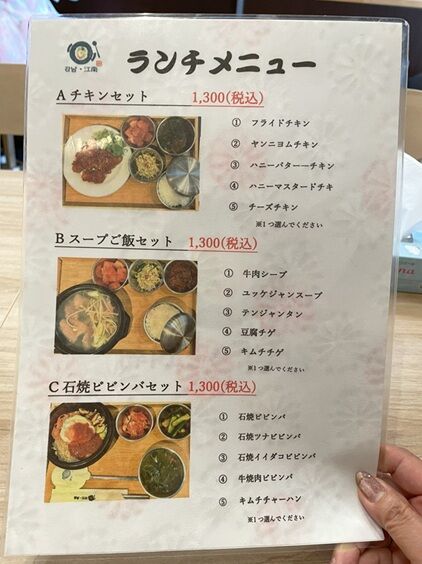 강남・江南
ランチメニュー
A チキンセット 1,300(税込)
① フライドチキン
② ヤンニヨムチキン
③ ハニーバターーチキン
④ ハニーマスタードチキ
⑤ チーズチキン
※1つ選んでください
B スープご飯セット 1,300(税込)
① 牛肉シープ
② ユッケジャンスープ
③ テンジャンタン
④ 豆腐チゲ
⑤ キムチチゲ
※1つ選んでください
C 石焼ビビンバセット 1,300(税込)
① 石焼ビビンバ
② 石焼ツナビビンバ
③ 石焼イイダコビビンバ
④ 牛焼肉ビビンバ
⑤ キムチチャーハン
※1つ選んでください